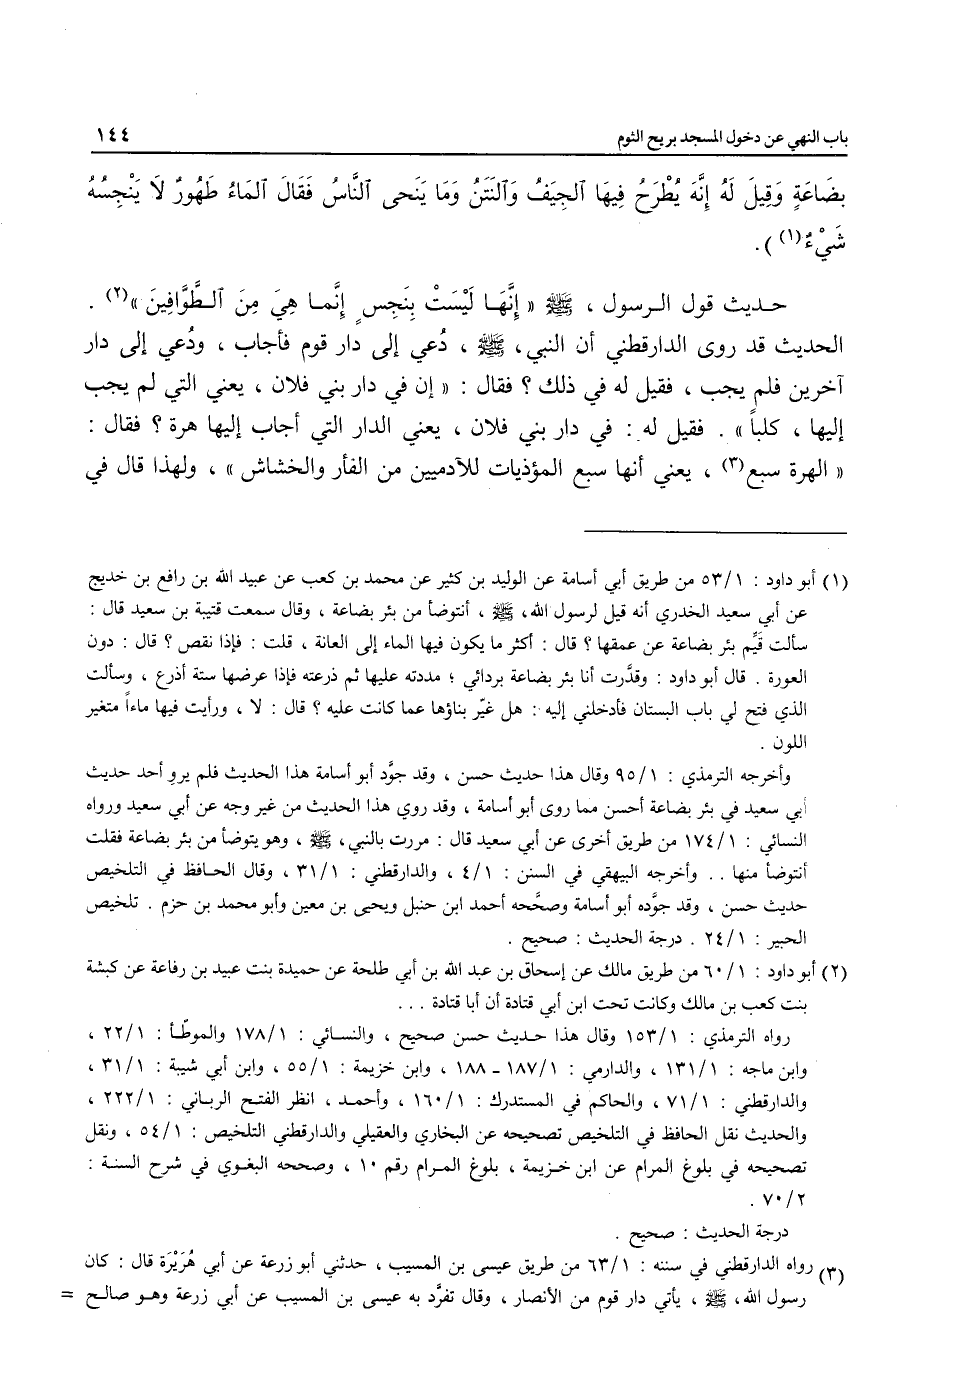 باب النهي عن دخول المسجد بريح الثوم ١٤٤
بِضَاعَةٍ وَقِيلَ لَهُ إِنَّهَ يُطْرَحُ فِيهَا الجِيَفُ وَالنَّتَنُ وَمَا يَنَحى النَّاسُ فَقَالَ المَاءُ طَهُورٌ لَا يَنْجِسُهُ
شَيْءٌ(١) ).
حديث قول الرسول ، ﷺ « إِنَّهَا لَيْسَتْ بِنَجِسٍ إِنَّما هِيَ مِنَ الطَّوَّافِينَ »(٢) .
الحديث قد روى الدارقطني أن النبي، ﷺ ، دُعي إلى دار قوم فأجاب ، ودُعي إلى دار
آخرين فلم يجب ، فقيل له في ذلك ؟ فقال : « إن في دار بني فلان ، يعني التي لم يجب
إليها ، كلباً » . فقيل له : في دار بني فلان ، يعني الدار التي أجاب إليها هرة ؟ فقال :
« الهرة سبع(٣) ، يعني أنها سبع المؤذيات للآدميين من الفأر والخشاش » ، ولهذا قال في
(١) أبو داود : ٥٣/١ من طريق أبي أسامة عن الوليد بن كثير عن محمد بن كعب عن عبيد الله بن رافع بن خديج
عن أبي سعيد الخدري أنه قيل لرسول الله، ﷺ ، أنتوضأ من بئر بضاعة ، وقال سمعت قتيبة بن سعيد قال :
سألت قَيِّم بئر بضاعة عن عمقها ؟ قال : أكثر ما يكون فيها الماء إلى العانة ، قلت : فإذا نقص ؟ قال : دون
العورة . قال أبو داود : وقدَّرت أنا بئر بضاعة بردائي ؛ مددته عليها ثم ذرعته فإذا عرضها ستة أذرع ، وسألت
الذي فتح لي باب البستان فأدخلني إليه : هل غيّر بناؤها عما كانت عليه ؟ قال : لا ، ورأيت فيها ماءاً متغير
اللون .
وأخرجه الترمذي : ٩٥/١ وقال هذا حديث حسن ، وقد جوَّد أبو أسامة هذا الحديث فلم يروِ أحد حديث
أبي سعيد في بئر بضاعة أحسن مما روى أبو أسامة ، وقد روي هذا الحديث من غير وجه عن أبي سعيد ورواه
النسائي : ١٧٤/١ من طريق أخرى عن أبي سعيد قال : مررت بالنبي، ﷺ ، وهو يتوضأ من بئر بضاعة فقلت
أنتوضأ منها . . وأخرجه البيهقي في السنن : ٤/١ ، والدارقطني : ٣١/١ ، وقال الحافظ في التلخيص
حديث حسن ، وقد جوَّده أبو أسامة وصحَّحه أحمد ابن حنبل ويحيى بن معين وأبو محمد بن حزم . تلخيص
الحبير : ٢٤/١ . درجة الحديث : صحيح .
(٢) أبو داود : ٦٠/١ من طريق مالك عن إسحاق بن عبد الله بن أبي طلحة عن حميدة بنت عبيد بن رفاعة عن كبشة
بنت كعب بن مالك وكانت تحت ابن أبي قتادة أن أبا قتادة . . .
رواه الترمذي : ١٥٣/١ وقال هذا حديث حسن صحيح ، والنسائي : ١٧٨/١ والموطّأ : ٢٢/١ ،
وابن ماجه : ١٣١/١ ، والدارمي : ١٨٧/١ ـ ١٨٨ ، وابن خزيمة : ٥٥/١ ، وابن أبي شيبة : ٣١/١ ،
والدارقطني : ٧١/١ ، والحاكم في المستدرك : ١٦٠/١ ، وأحمد ، انظر الفتح الرباني : ٢٢٢/١ ،
والحديث نقل الحافظ في التلخيص تصحيحه عن البخاري والعقيلي والدارقطني التلخيص : ٥٤/١ ، ونقل
تصحيحه في بلوغ المرام عن ابن خزيمة ، بلوغ المرام رقم ١٠ ، وصححه البغوي في شرح السنة :
٧٠/٢ .
درجة الحديث : صحيح .
(٣) رواه الدارقطني في سننه : ٦٣/١ من طريق عيسى بن المسيب ، حدثني أبو زرعة عن أبي هُرَيْرَة قال : كان
رسول الله، ﷺ ، يأتي دار قوم من الأنصار ، وقال تفرَّد به عيسى بن المسيب عن أبي زرعة وهو صالح =